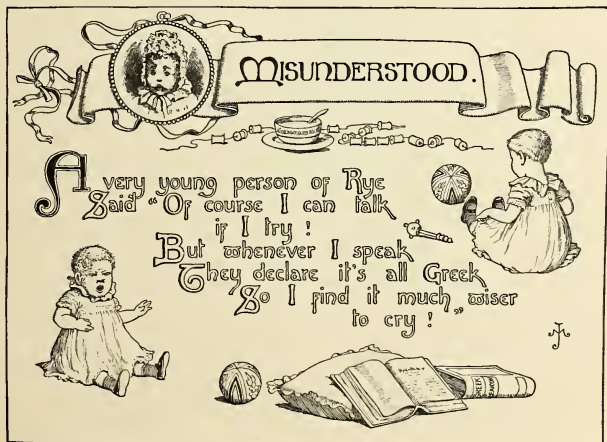 MISUNDERSTOOD.
A very young person of Rye
Said "Of course I can talk
if I try!
But whenever I speak
They declare it's all Greek
So I find it much wiser
to cry!"